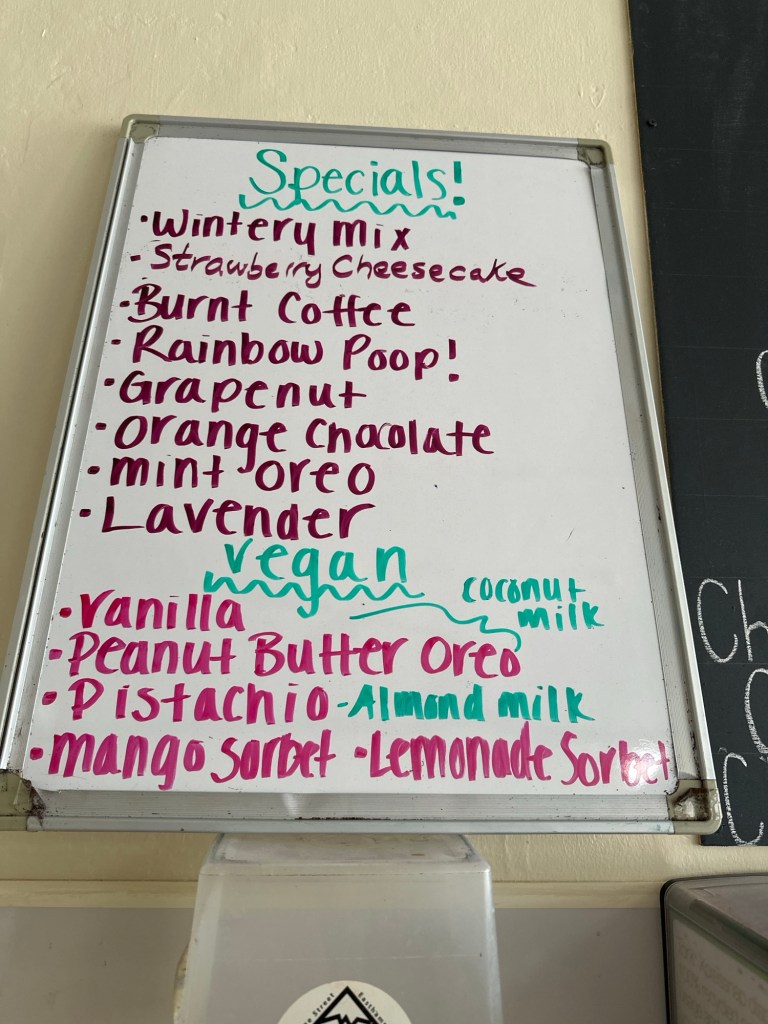 Specials!
· Wintery mix
· Strawberry Cheesecake
· Burnt Coffee
· Rainbow Poop!
· Grapenut
· Orange Chocolate
· mint oreo
· Lavender
vegan
coconut
milk
· Vanilla
· Peanut Butter Oreo
· Pistachio - Almond milk
· mango sorbet · Lemonade Sorbet
Ch
Street